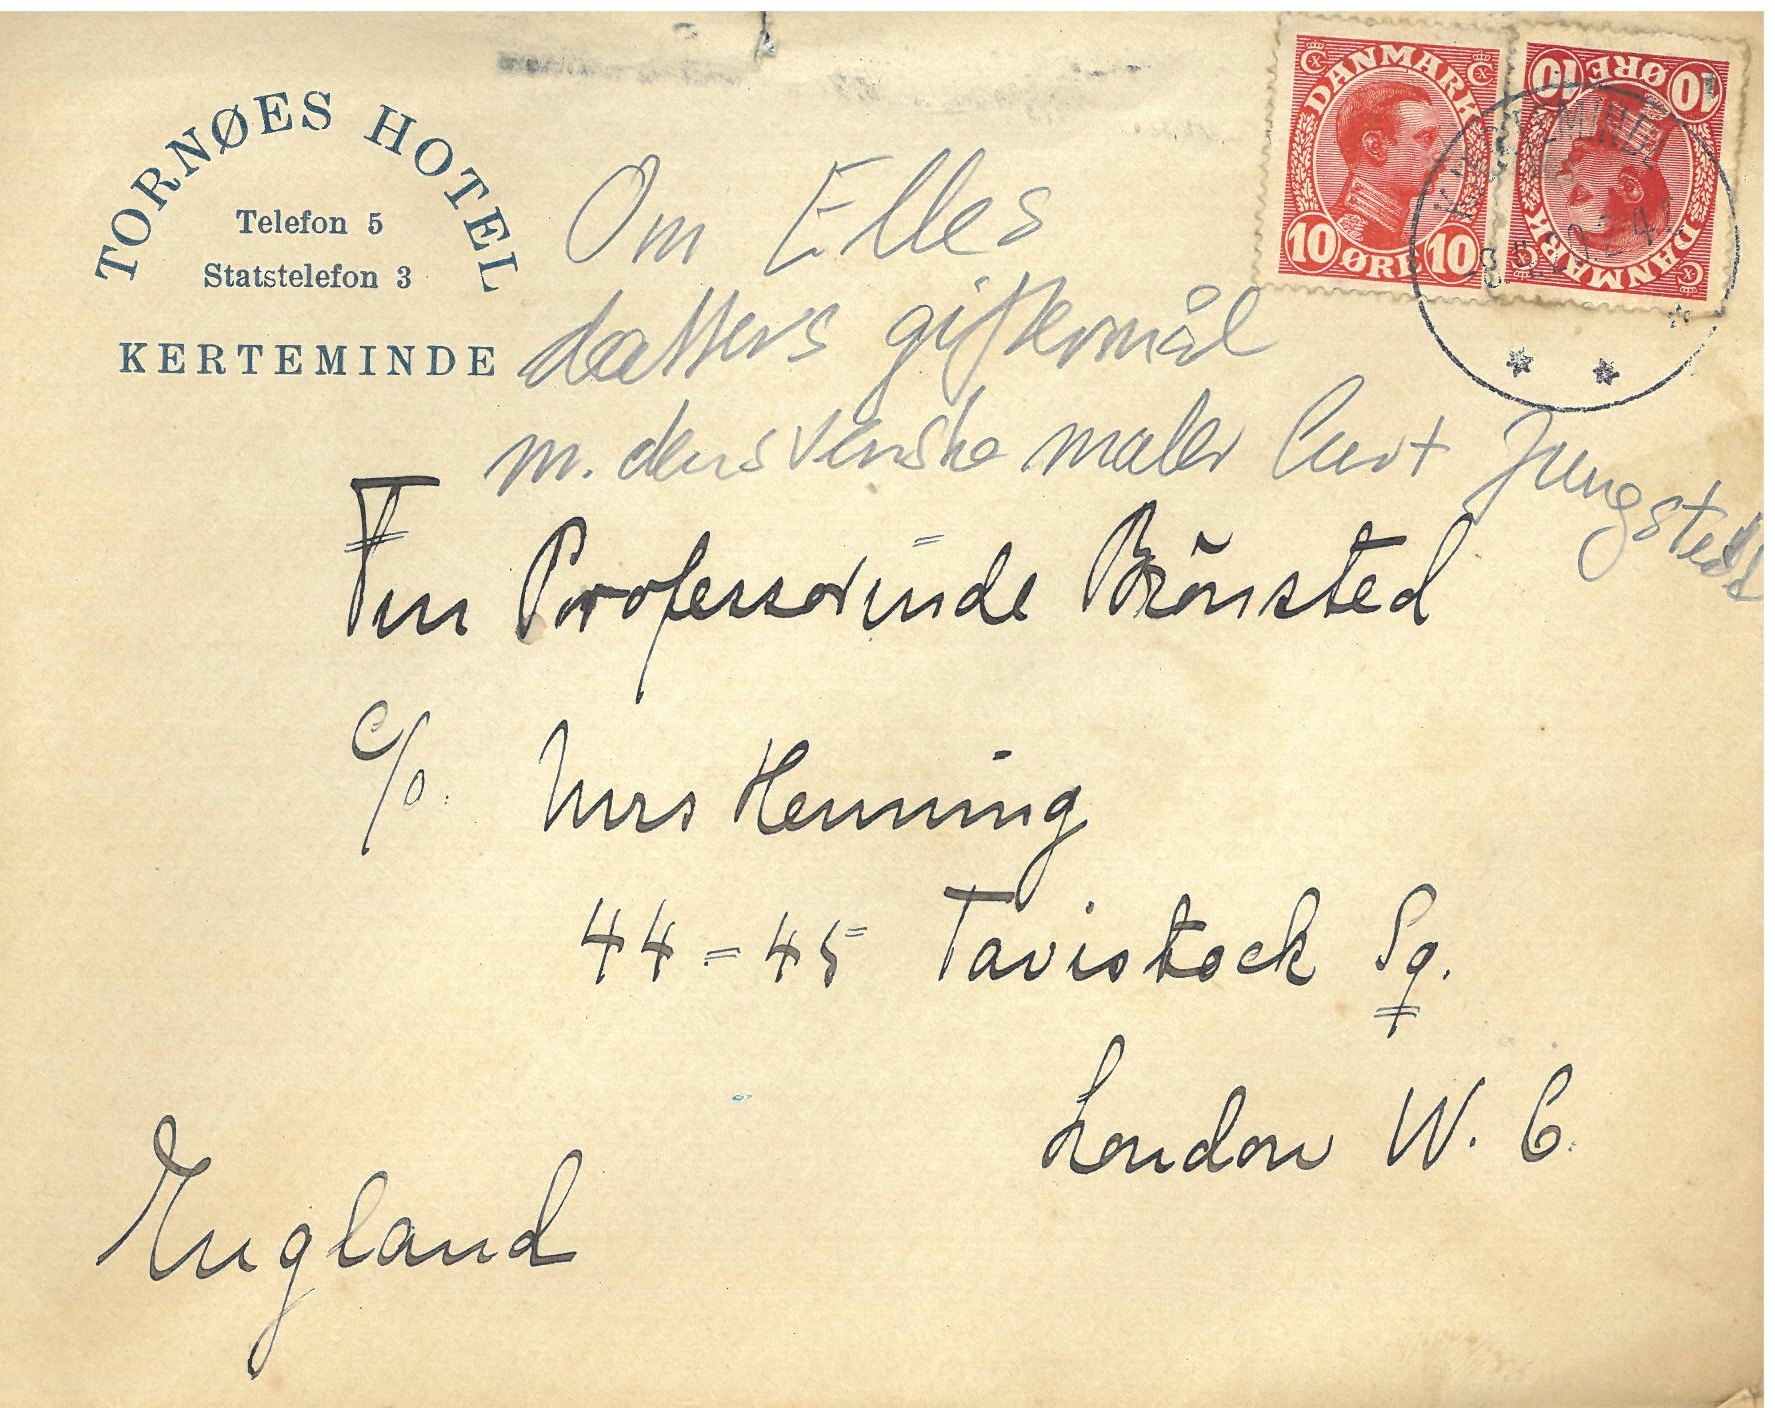 TORNØES HOTEL
Telefon 5
Statstelefon 3
KERTEMINDE
DANMARK
10 ØRE 10
DANMARK
10 ØRE 10
KERTEMINDE
Om Elles
datters giftermål
m. den svenske maler Curt Jungstedt
Fru Professorinde Brönsted
c/o. Mrs Henning
44=45 Tavistock Sq.
London W. C.
England